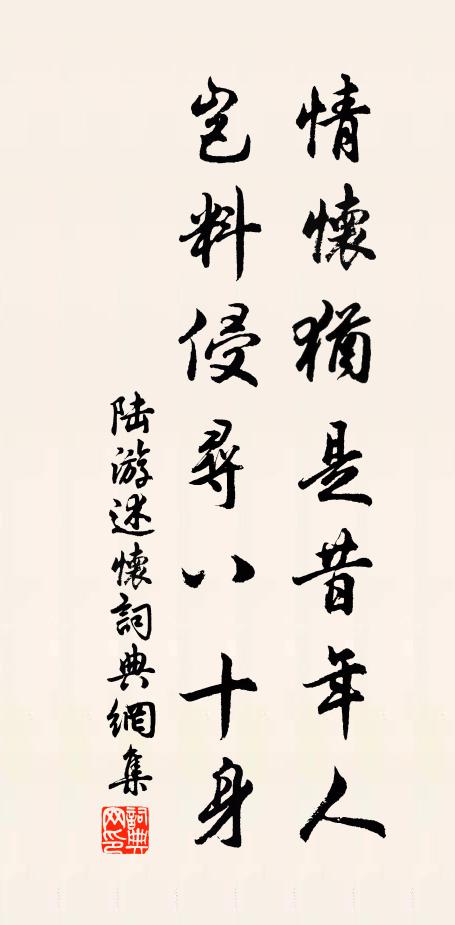 情懷猶是昔年人
豈料侵尋八十身
陸游述懷詞典網集
詞典网印